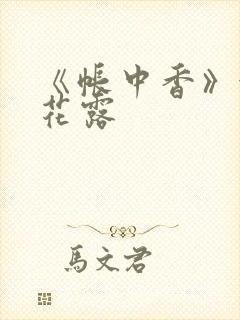 《帳中香》
花露
馬文君